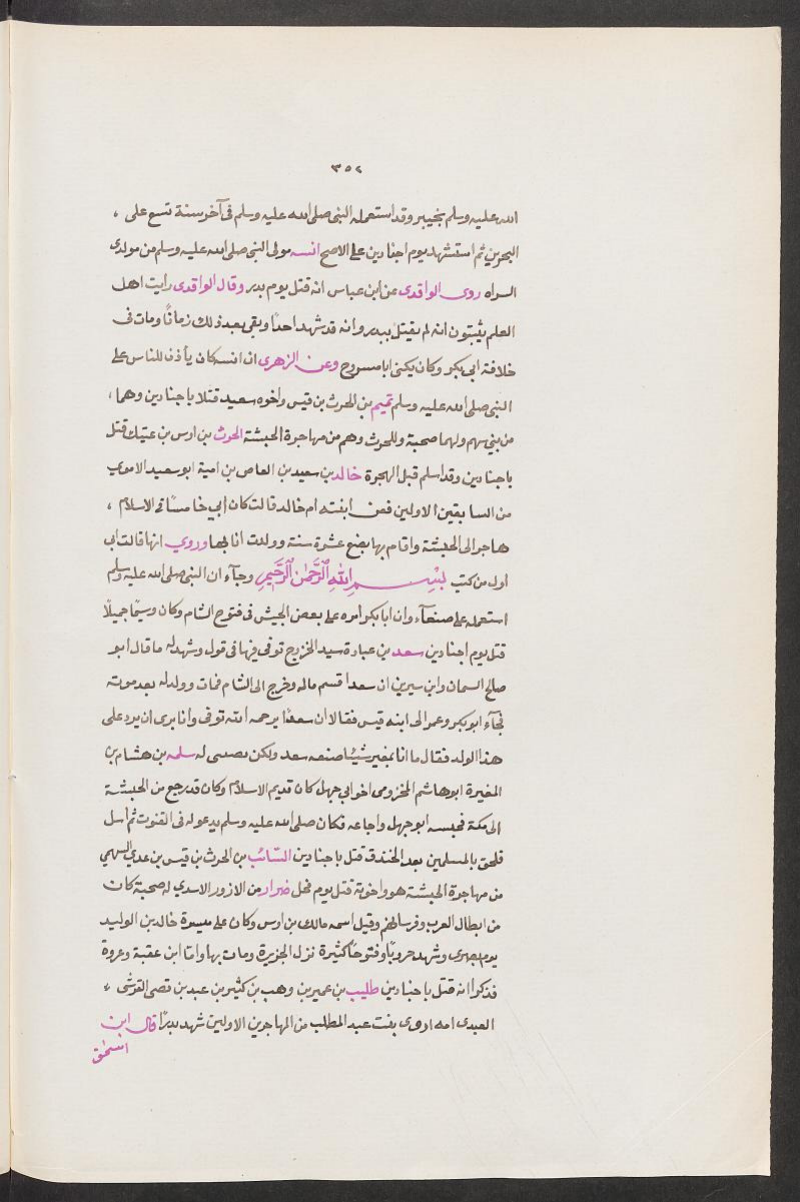 ٣٥٢
الله عليه وسلم بخيبر وقد استعمله النبى صلى الله عليه وسلم فى آخر سنة تسع على ،
البحرين ثم استشهد يوم اجنادين على الاصح انسه مولى النبى صلى الله عليه وسلم من مولدى
السراه روى الواقدى عن ابن عباس انه قتل يوم بدر وقال الواقدى رايت اهل
العلم يثبتون انه لم يقتل ببدر وانه قد شهد احدًا وبقى بعد ذلك زمانًا ومات فى
خلافة ابى بكر وكان يكنى ابا مسروح وعن الزهرى ان انسه كان يأذن للناس على
النبى صلى الله عليه وسلم تميم بن الحرث بن قيس واخوه سعيد قتلا باجنادين وهما ،
من بنى سهم ولهما صحبة وللحرث وهم من مهاجرة الحبشة الحرث بن اوس بن عتيك قتل
باجنادين وقد اسلم قبل الهجرة خالد بن سعيد بن العاص بن امية ابو سعيد الاموي
من السابقين الاولين فعن ابنته ام خالد قالت كان أبي خامسًا فى الاسلام ،
هاجر الى الحبشة واقام بها بضع عشرة سنة وولدت انا بها وروي انها قالت ابى
اول من كتب بسم الله الرحمن الرحيم وجآء ان النبى صلى الله عليه وسلم
استعمله على صنعآء وان ابا بكر امره على بعض الجيش فى فتوح الشام وكان وسيمًا جميلًا
قتل يوم اجنادين سعد بن عبادة سيد الخزرج توفى فيها فى قول وشهد له ما قال ابو
صالح السمان وابن سيرين ان سعدا قسم ماله وخرج الى الشام فمات وولد له بعد موته
فجآء ابو بكر وعمر الى ابنه قيس فقالا ان سعدًا يرحمه الله توفى وانا نرى ان يرد على
هذا الولد فقال ما انا بمغير شيئا صنعه سعد ولكن نصيبى له سلمه بن هشام بن
المغيرة ابو هاشم المخزومى اخو ابي جهل كان قديم الاسلام وكان قد رجع من الحبشة
الى مكة فحبسه ابو جهل واجاعه فكان صلى الله عليه وسلم يدعو له فى القنوت ثم انسل
فلحق بالمسلمين بعد الخندق قتل باجنادين السّائب بن الحرث بن قيس بن عدي السهمي
من مهاجرة الحبشة هو واخوته قتل يوم فحل ضرار من الازور الاسدي له صحبة كان
من ابطال العرب وفرسانهم وقيل اسمه مالك بن اوس وكان على ميسرة خالد بن الوليد
يوم بصرى وشهد حروبًا وفتوحًا كثيرة نزل الجزيرة ومات بها واما ابن عقبة وعروة
فذكرا انه قتل باجنادين طليب بن عمير بن وهب بن كثير بن عبد بن قصى القرشى ،
العبدى امه اروى بنت عبد المطلب من المهاجرين الاولين شهد بدرًا قال ابن
اسحٰق